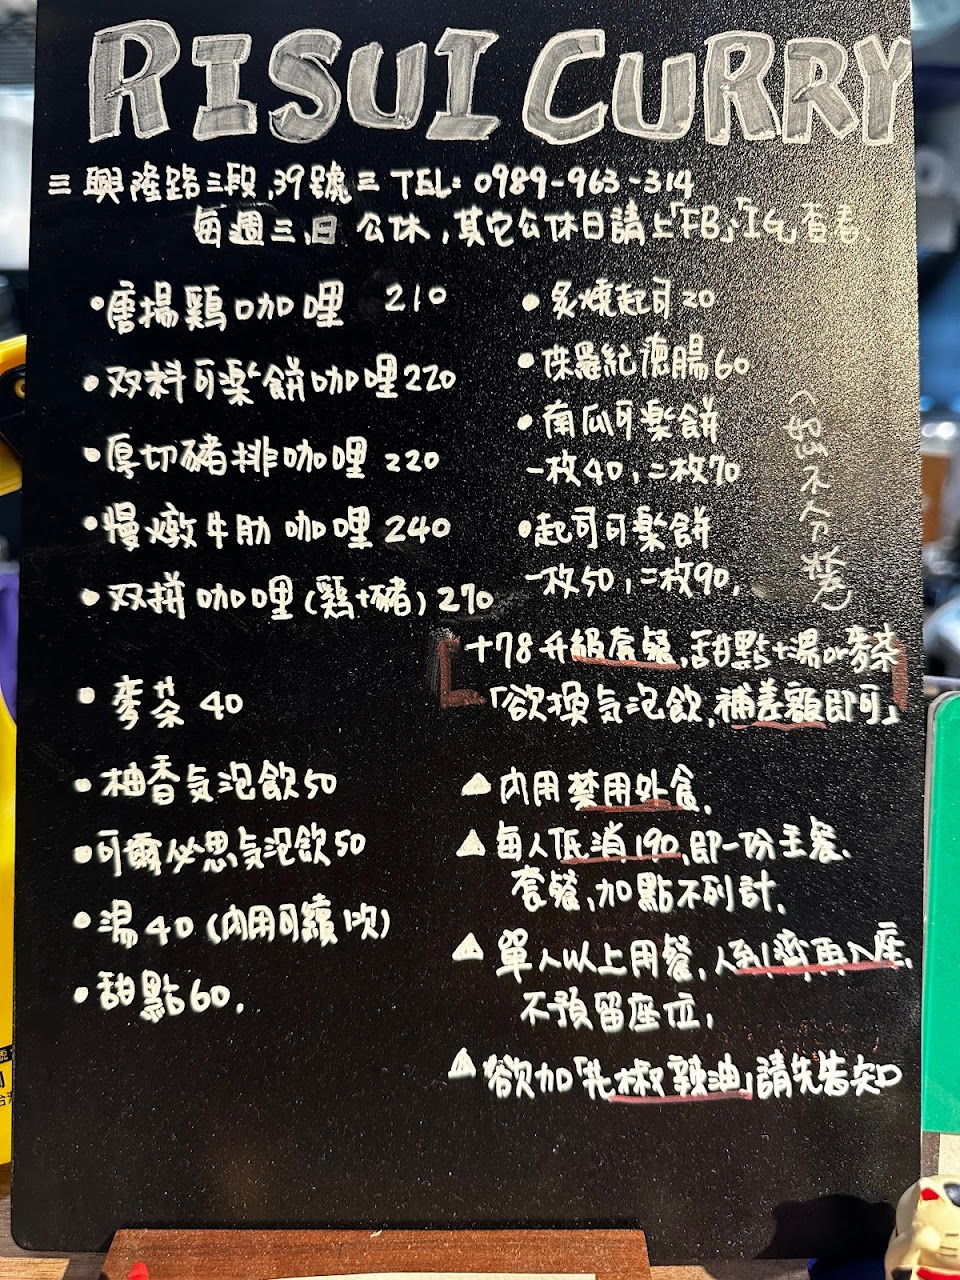 RISUI CURRY
三 興隆路三段,39號 三 TEL: 0989-963-314
每週三、日 公休,其它公休日請上「FB」、「IG」查看.
•唐揚鶏咖哩 210
•双料可楽餅咖哩220
•厚切豬排咖哩 220
•慢燉牛肋咖哩 240
•双拼咖哩(鶏+豬) 270
•麥茶 40
•柚香気泡飲50
•可爾必思気泡飲50
•湯40(內用可續1次)
•甜點60.
•炙燒起司20
•侏羅紀德腸60
•南瓜可楽餅
一枚40,二枚70
•起司可楽餅
一枚50,二枚90.
(恕不分裝)
+78升級套餐,甜點+湯or麥茶
「欲換気泡飲,補差額即可」
⚠內用禁用外食.
⚠每人低消190,即一份主餐.
套餐、加點不列計.
⚠單人以上用餐,人到齊再入座,
不預留座位.
⚠欲加「扎椒辣油」請先告知